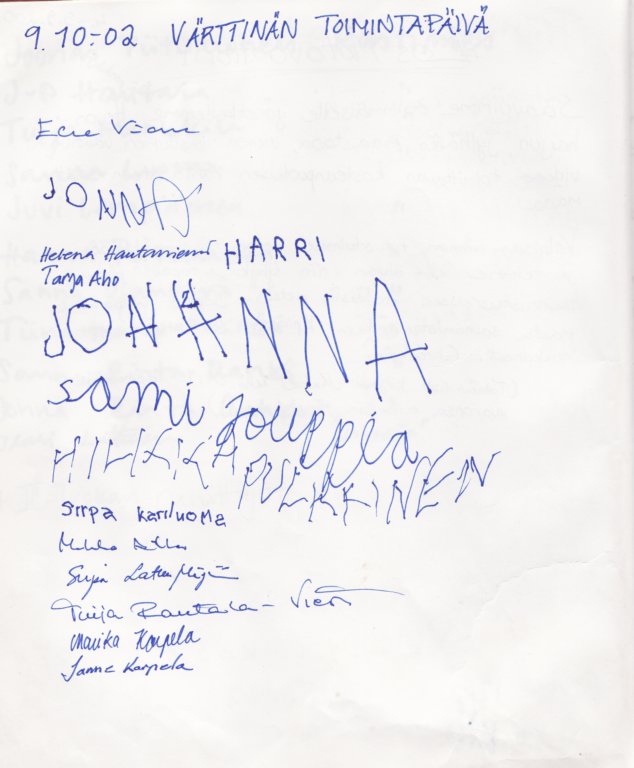 9.10-02 VÄRTTINÄN TOIMINTAPÄIVÄ
JONNA
Helena Hautaniemi HARRI
Tarja Aho
JOHANNA
sami jouppia
HILKKA PULKKINEN
sirpa kariluoma
Tuija Rautala-
Marika Korpela
Janne Korpela